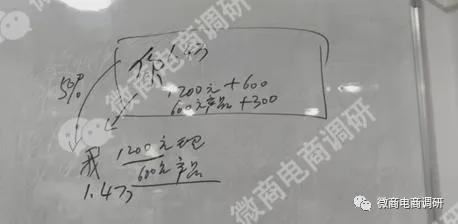 你 1.4万
1200元+600
600元产品+300
50%
我 1200元现
600元产品
1.4万
微商电商调研
微商电商调研
微商电商调研
微商电商调研